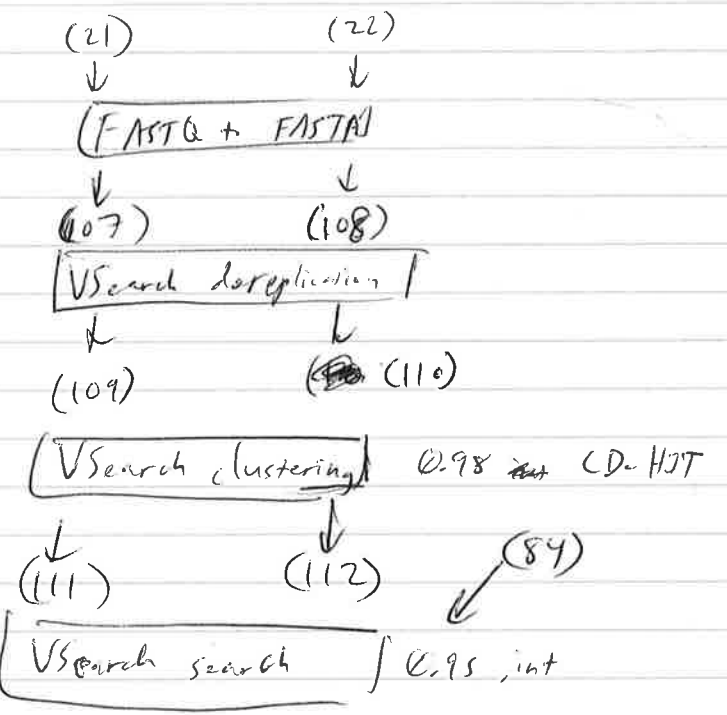 (21) (22)
FASTQ + FASTA
(107) (108)
VSearch dereplication
(109) (110)
VSearch clustering 0.98 CD-HIT
(111) (112) (84)
VSearch search 0.95, int